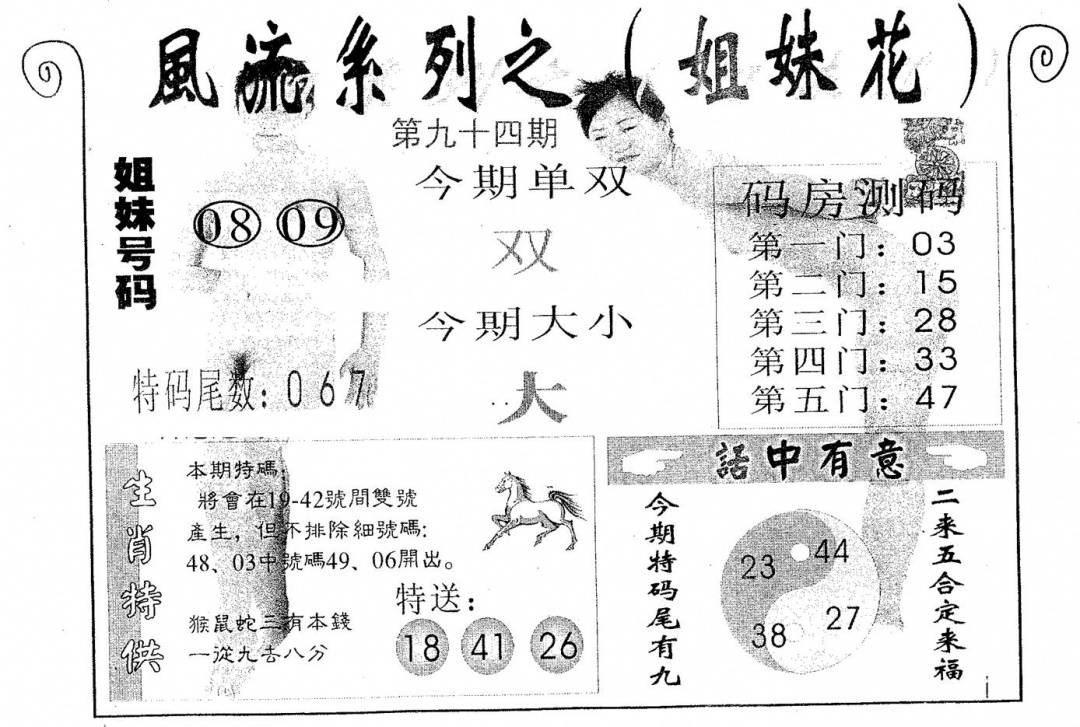 風流系列之(姐妹花)
第九十四期
姐妹号码
08 09
今期单双
双
今期大小
大
特码尾数: 067
码房测码
第一门: 03
第二门: 15
第三门: 28
第四门: 33
第五门: 47
生肖特供
本期特碼:
將會在19-42號間雙號
產生,但不排除細號碼:
48、03中號碼49、06開出。
猴鼠蛇三有本錢
一從九去八分
特送:
18 41 26
話中有意
今期特码尾有九
23 44
38 27
二来五合定来福